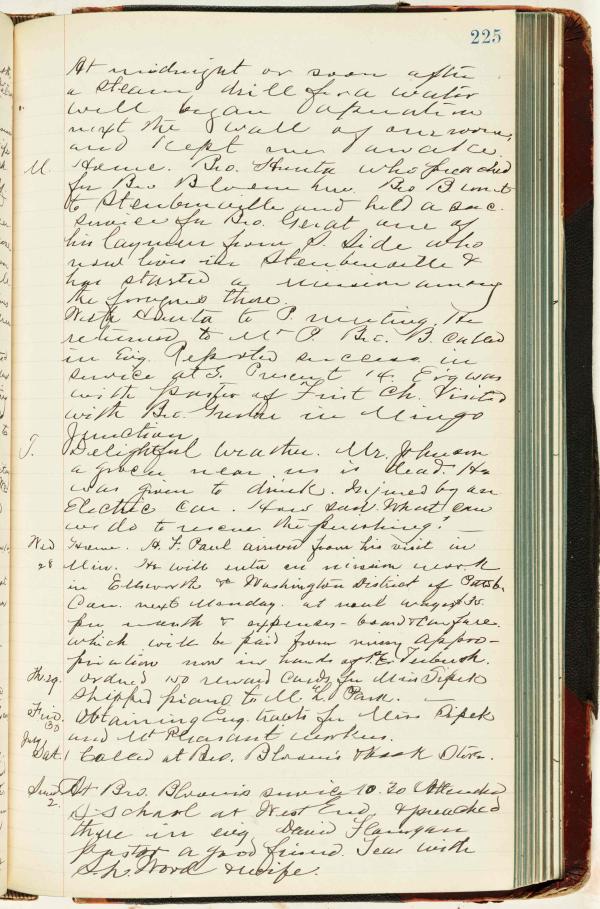 225
At midnight or soon after
a steam drill for a water
well began operation
next the wall of our room,
and kept me awake.
M. Home. Bro. Hunta who preached
for Bro Blovin here. Bro B went
to Steubenville and held a sac.
service for Bro. Gerat one of
his laymen from S. Side who
now lives in Steubenville &
has started a mission among
the foreigners there.
With Hunta to P. meeting. He
returned to Mt P. Bro. B. called
in Evg. Reported success in
service at S. Present 14. Evg was
with pastor of First Ch. Visited
with Bro. in Mingo
Junction
T. Delightful weather. Mr. Johnson
a grocer near us is dead. He
was given to drink. Injured by an
Electric Car. How sad. What can
we do to rescue the perishing?
Wed 28 Home. H. F. Paul arrived from his visit in
Min. He will enter on mission work
in Ellsworth & Washington District of Pittsb.
Con. next Monday. at next wages $30.
per month & expenses - board & car fare.
which will be paid from missy appro-
priation now in hands of
Thr. 29. Ordered 100 reward Cards for Miss Pipek
Shipped piano to M. E. Park.
Frid. 30 Obtaining Eng. tracts for Miss Pipek
and Mt Pleasant workers.
July Sat. 1 Called at Bro. Blovin's & Book Store.
Sund 2. At Bro. Blovin's service 10.30 Attended
S School at West End, & preached
there in evg David Flanigan
pastor a good friend. Tea with
Wood & wife.